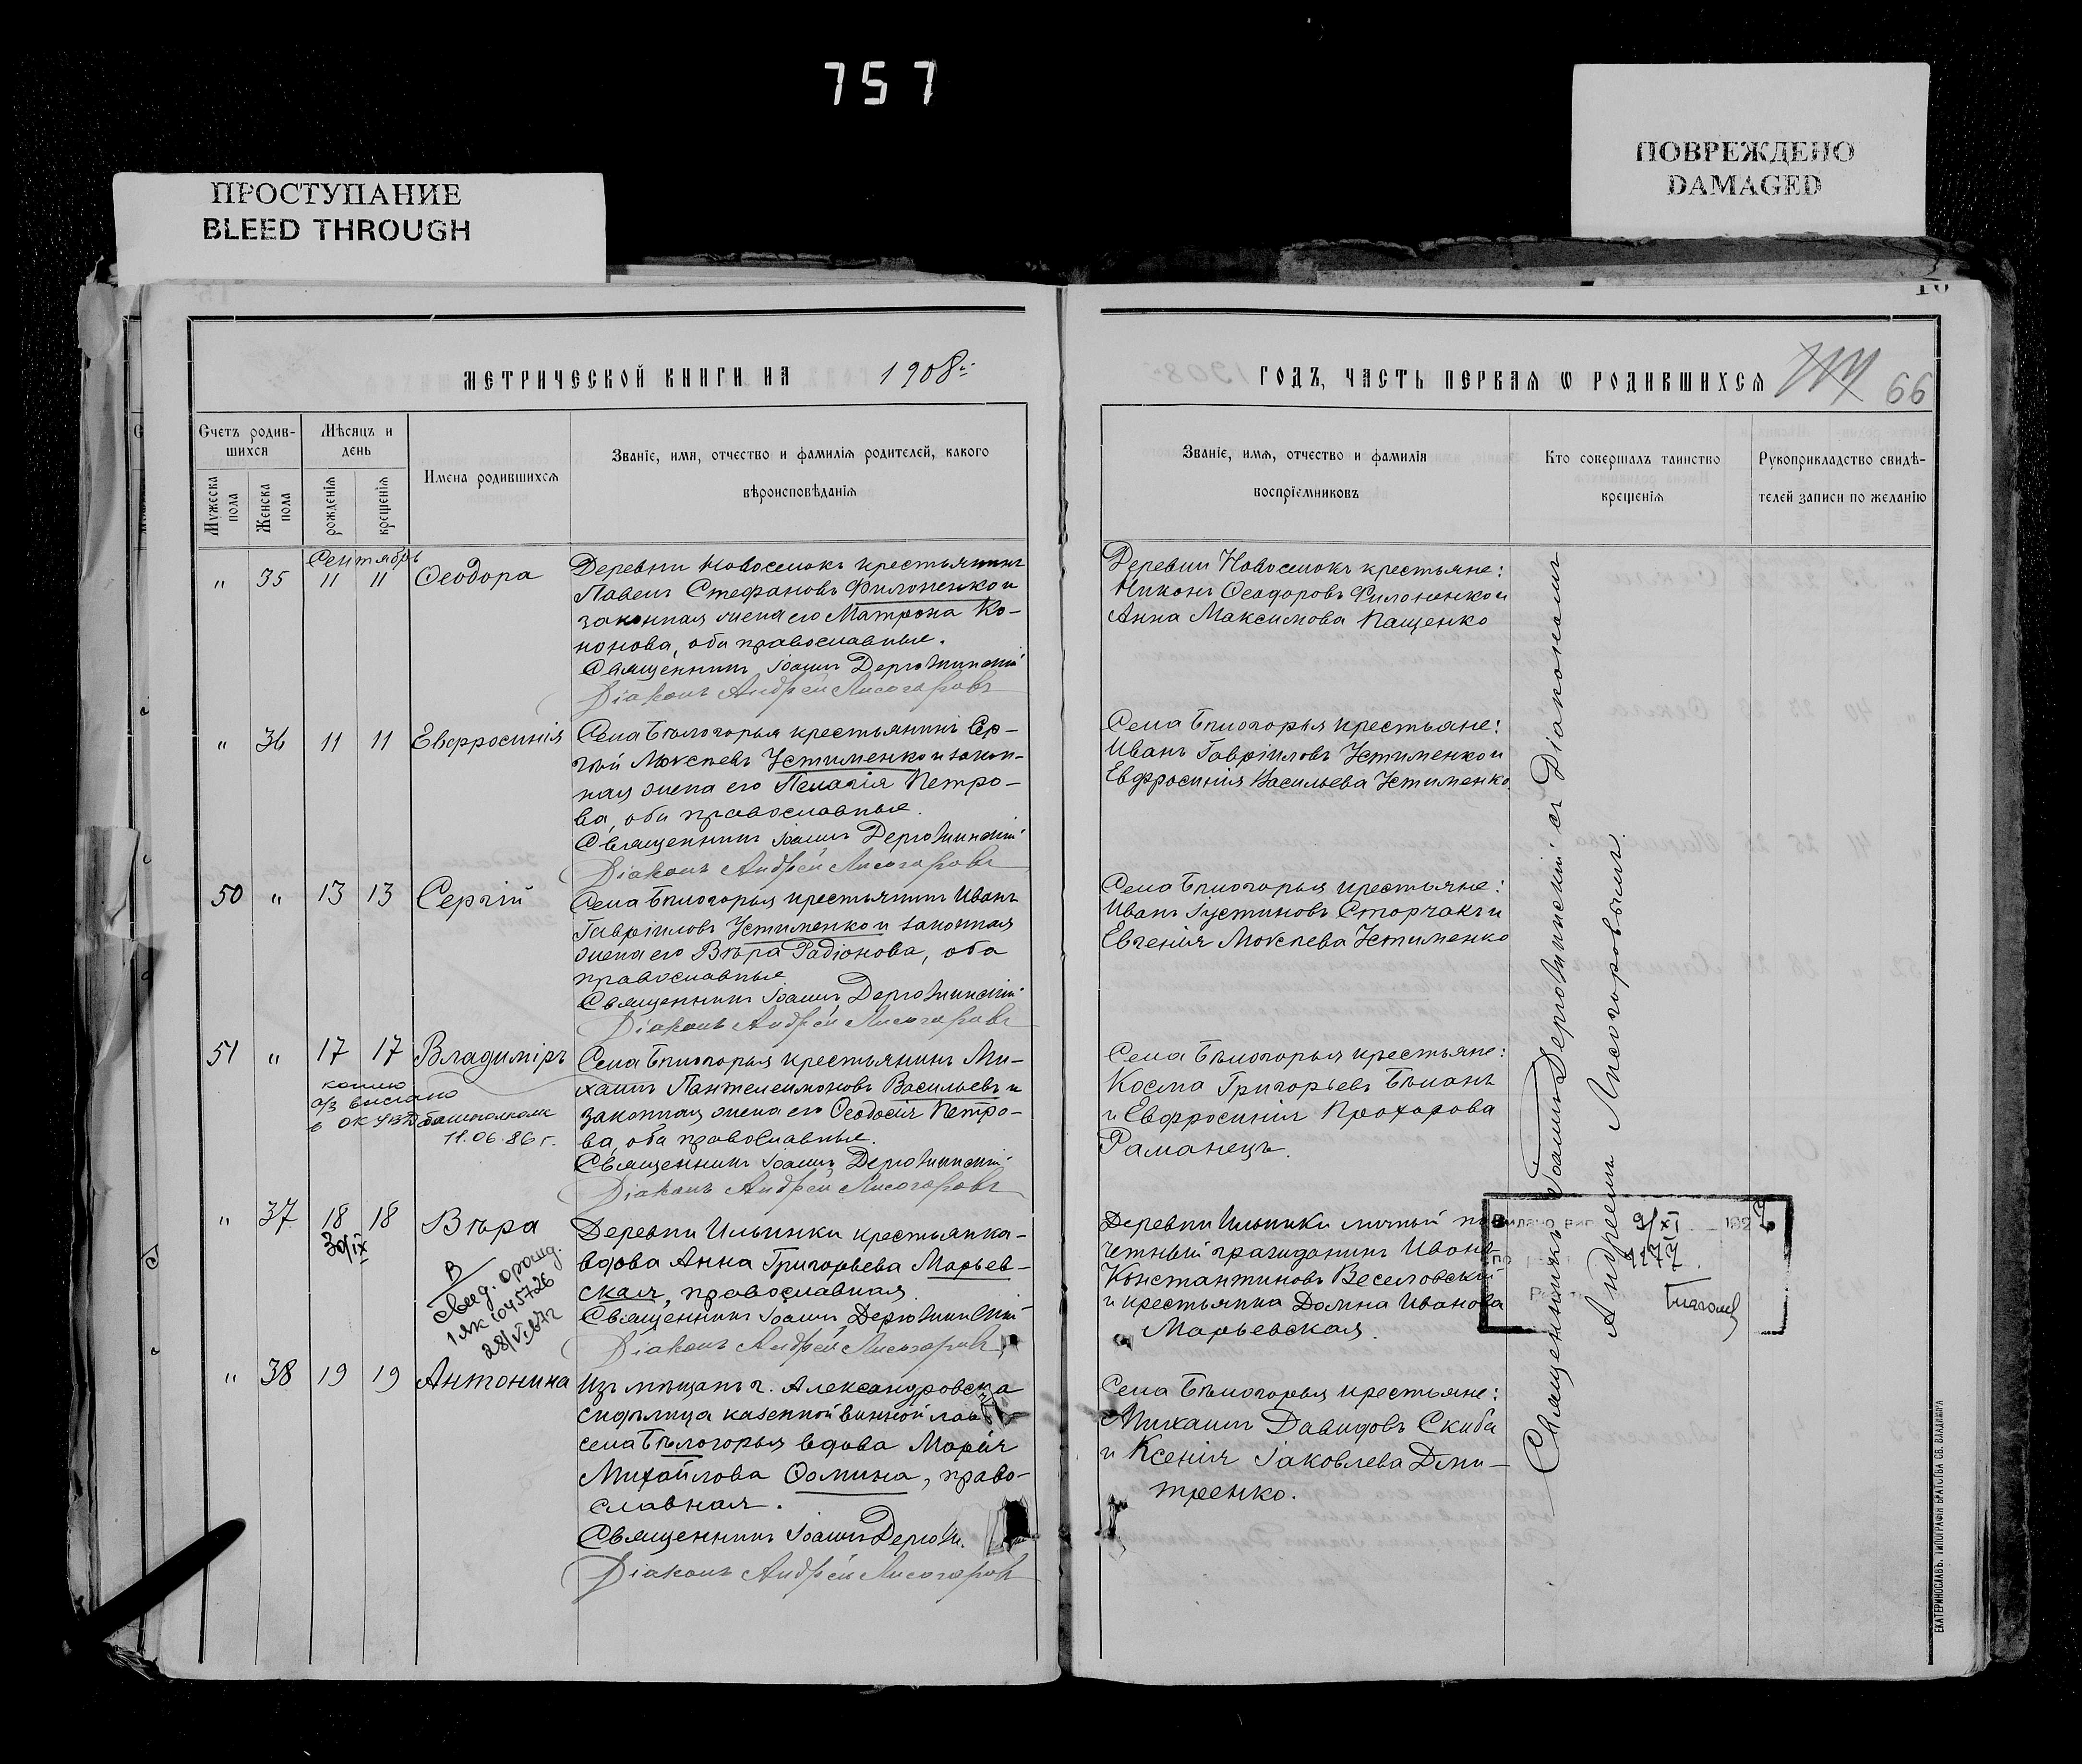 757
ПРОСТУПАНИЕ
BLEED THROUGH
ПОВРЕЖДЕНО
DAMAGED
МЕТРИЧЕСКОЙ КНИГИ НА 1908й
Счетъ родив-
шихся
Мужеска пола
Женска пола
Мѣсяцъ и
день
рожденія
крещенія
Имена родившихся
Званіе, имя, отчество и фамилія родителей, какого
вѣроисповѣданія
Сентябрь
" 35 11 11 Ѳеодора
Деревни Новоселокъ крестьянинъ
Павелъ Стефановъ Филоненко и
законная жена его Матрона Ко-
нонова, оба православные.
Священникъ Іоаннъ Держинскій
Діаконъ Андрей Лисогоровъ
" 36 11 11 Евфросинія
Села Бѣлогорья крестьянинъ Сер-
гѣй Моѵсеевъ Устименко и закон-
ная жена его Пелагія Петро-
ва, оба православные.
Священникъ Іоаннъ Держинскій
Діаконъ Андрей Лисогоровъ
50 " 13 13 Сергій
Села Бѣлогорья крестьянинъ Иванъ
Гавріиловъ Устименко и законная
жена его Вѣра Радіонова, оба
православные
Священникъ Іоаннъ Держинскій
Діаконъ Андрей Лисогоровъ
51 " 17 17 Владиміръ
копию
а/з выслано
в ОК УВД
11.06.86 г.
Села Бѣлогорья крестьянинъ Ми-
хаилъ Пантелеимоновъ Васильевъ и
законная жена его Ѳеодосія Петро-
ва, оба православные.
Священникъ Іоаннъ Держинскій
Діаконъ Андрей Лисогоровъ
" 37 18 18 Вѣра
30/IX
В
Свид. о рожд.
1 ЯК 1045726
28/VI 87г
Деревни Ильинки крестьянка-
вдова Анна Григорьева Марьев-
ская, православная.
Священникъ Іоаннъ Держинскій
Діаконъ Андрей Лисогоровъ
" 38 19 19 Антонина
Изъ мѣщанъ г. Александровска
сидѣлица казенной винной лав
села Бѣлогорья вдова Марія
Михайлова Ѳомина, право-
славная.
Священникъ Іоаннъ Держи
Діаконъ Андрей Лисогоров
ГОДЪ, ЧАСТЬ ПЕРВАЯ Ѡ РОДИВШИХСЯ
66
Званіе, имя, отчество и фамилія
воспріемниковъ
Кто совершалъ таинство
крещенія
Рукоприкладство свидѣ-
телей записи по желанію
Деревни Новоселокъ крестьяне:
Никонъ Ѳеодоровъ Филоненко и
Анна Максимова Пащенко
Села Бѣлогорья крестьяне:
Иванъ Гавріиловъ Устименко и
Евфросинія Васильева Устименко.
Села Бѣлогорья крестьяне:
Иванъ Іустиновъ Сторчакъ и
Евгенія Моѵсеева Устименко
Села Бѣлогорья крестьяне:
Косма Григорьевъ Бѣланъ
и Евфросинія Прохорова
Раманецъ.
Деревни Ильинки личный по
четный гражданинъ Иванъ
Константиновъ Веселовскій
и крестьянка Домна Иванова
Марьевская.
Села Бѣлогорья крестьяне:
Михаилъ Давидовъ Скиба
и Ксенія Іаковлева Дми-
тренко.
Священникъ Іоаннъ Держинскій съ Діакономъ
Андреемъ Лисогоровымъ.
9/XI 192
4177.
ЕКАТЕРИНОСЛАВЪ. ТИПОГРАФІЯ БРАТСТВА СВ. ВЛАДИМІРА